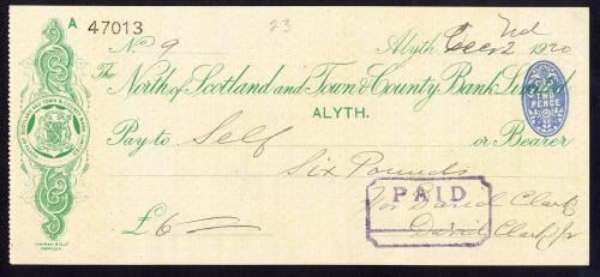 A 47013
23
No. 9 Alyth Decr 2nd 1920
The North of Scotland and Town & County Bank Limited
TWO PENCE
ALYTH.
Pay to Self or Bearer
Six Pounds
PAID
for David Clark
£6 David Clark Jr